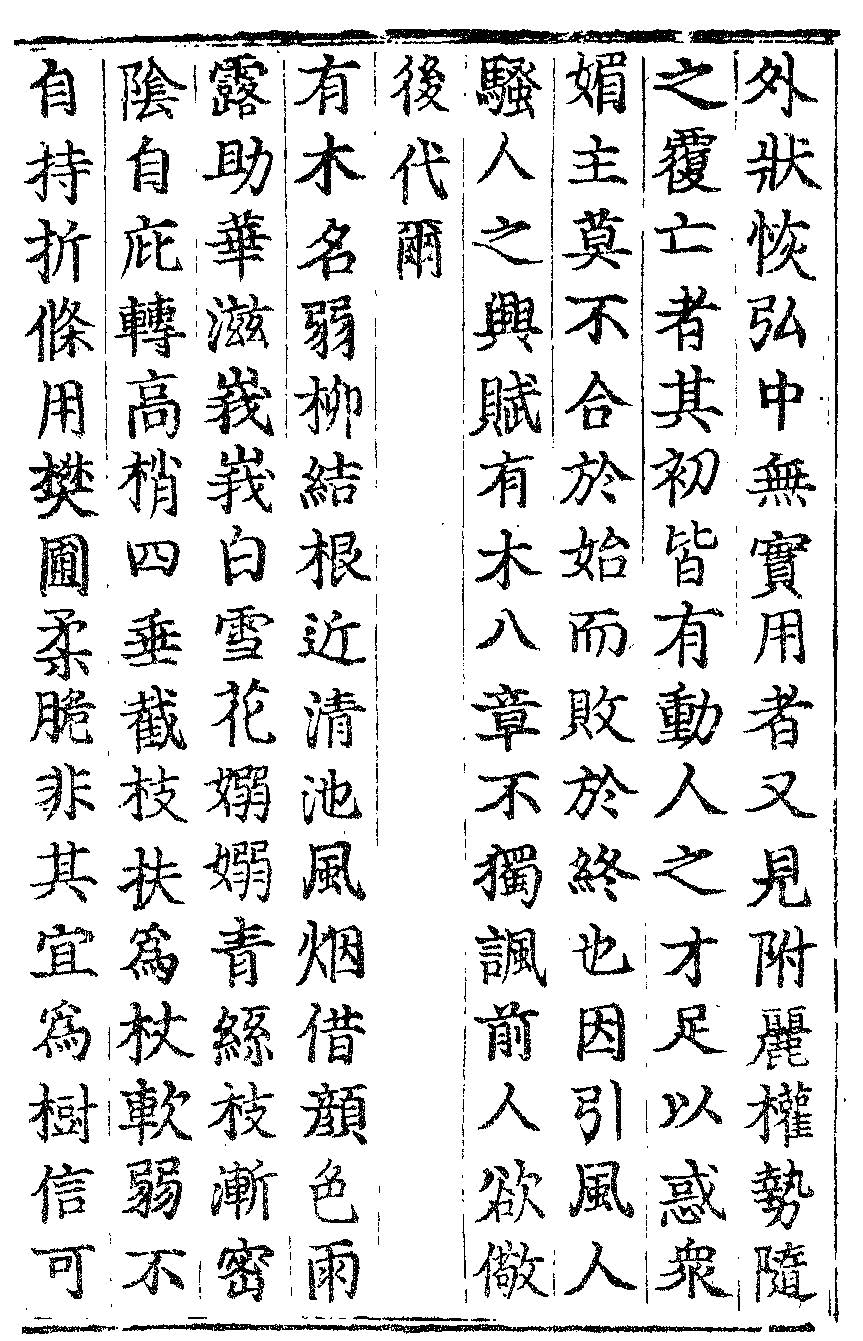 外狀恢弘中無實用者又見附麗權勢隨
之覆亡者其初皆有動人之才足以惑衆
媚主莫不合於始而敗於終也因引風人
騷人之興賦有木八章不獨諷前人欲儆
後代爾
有木名弱柳結根近清池風烟借顔色雨
露助華滋峩峩白雪花嫋嫋青絲枝漸密
陰自庇轉高梢四垂截枝扶為杖軟弱不
自持折條用樊圃柔脆非其宜為樹信可